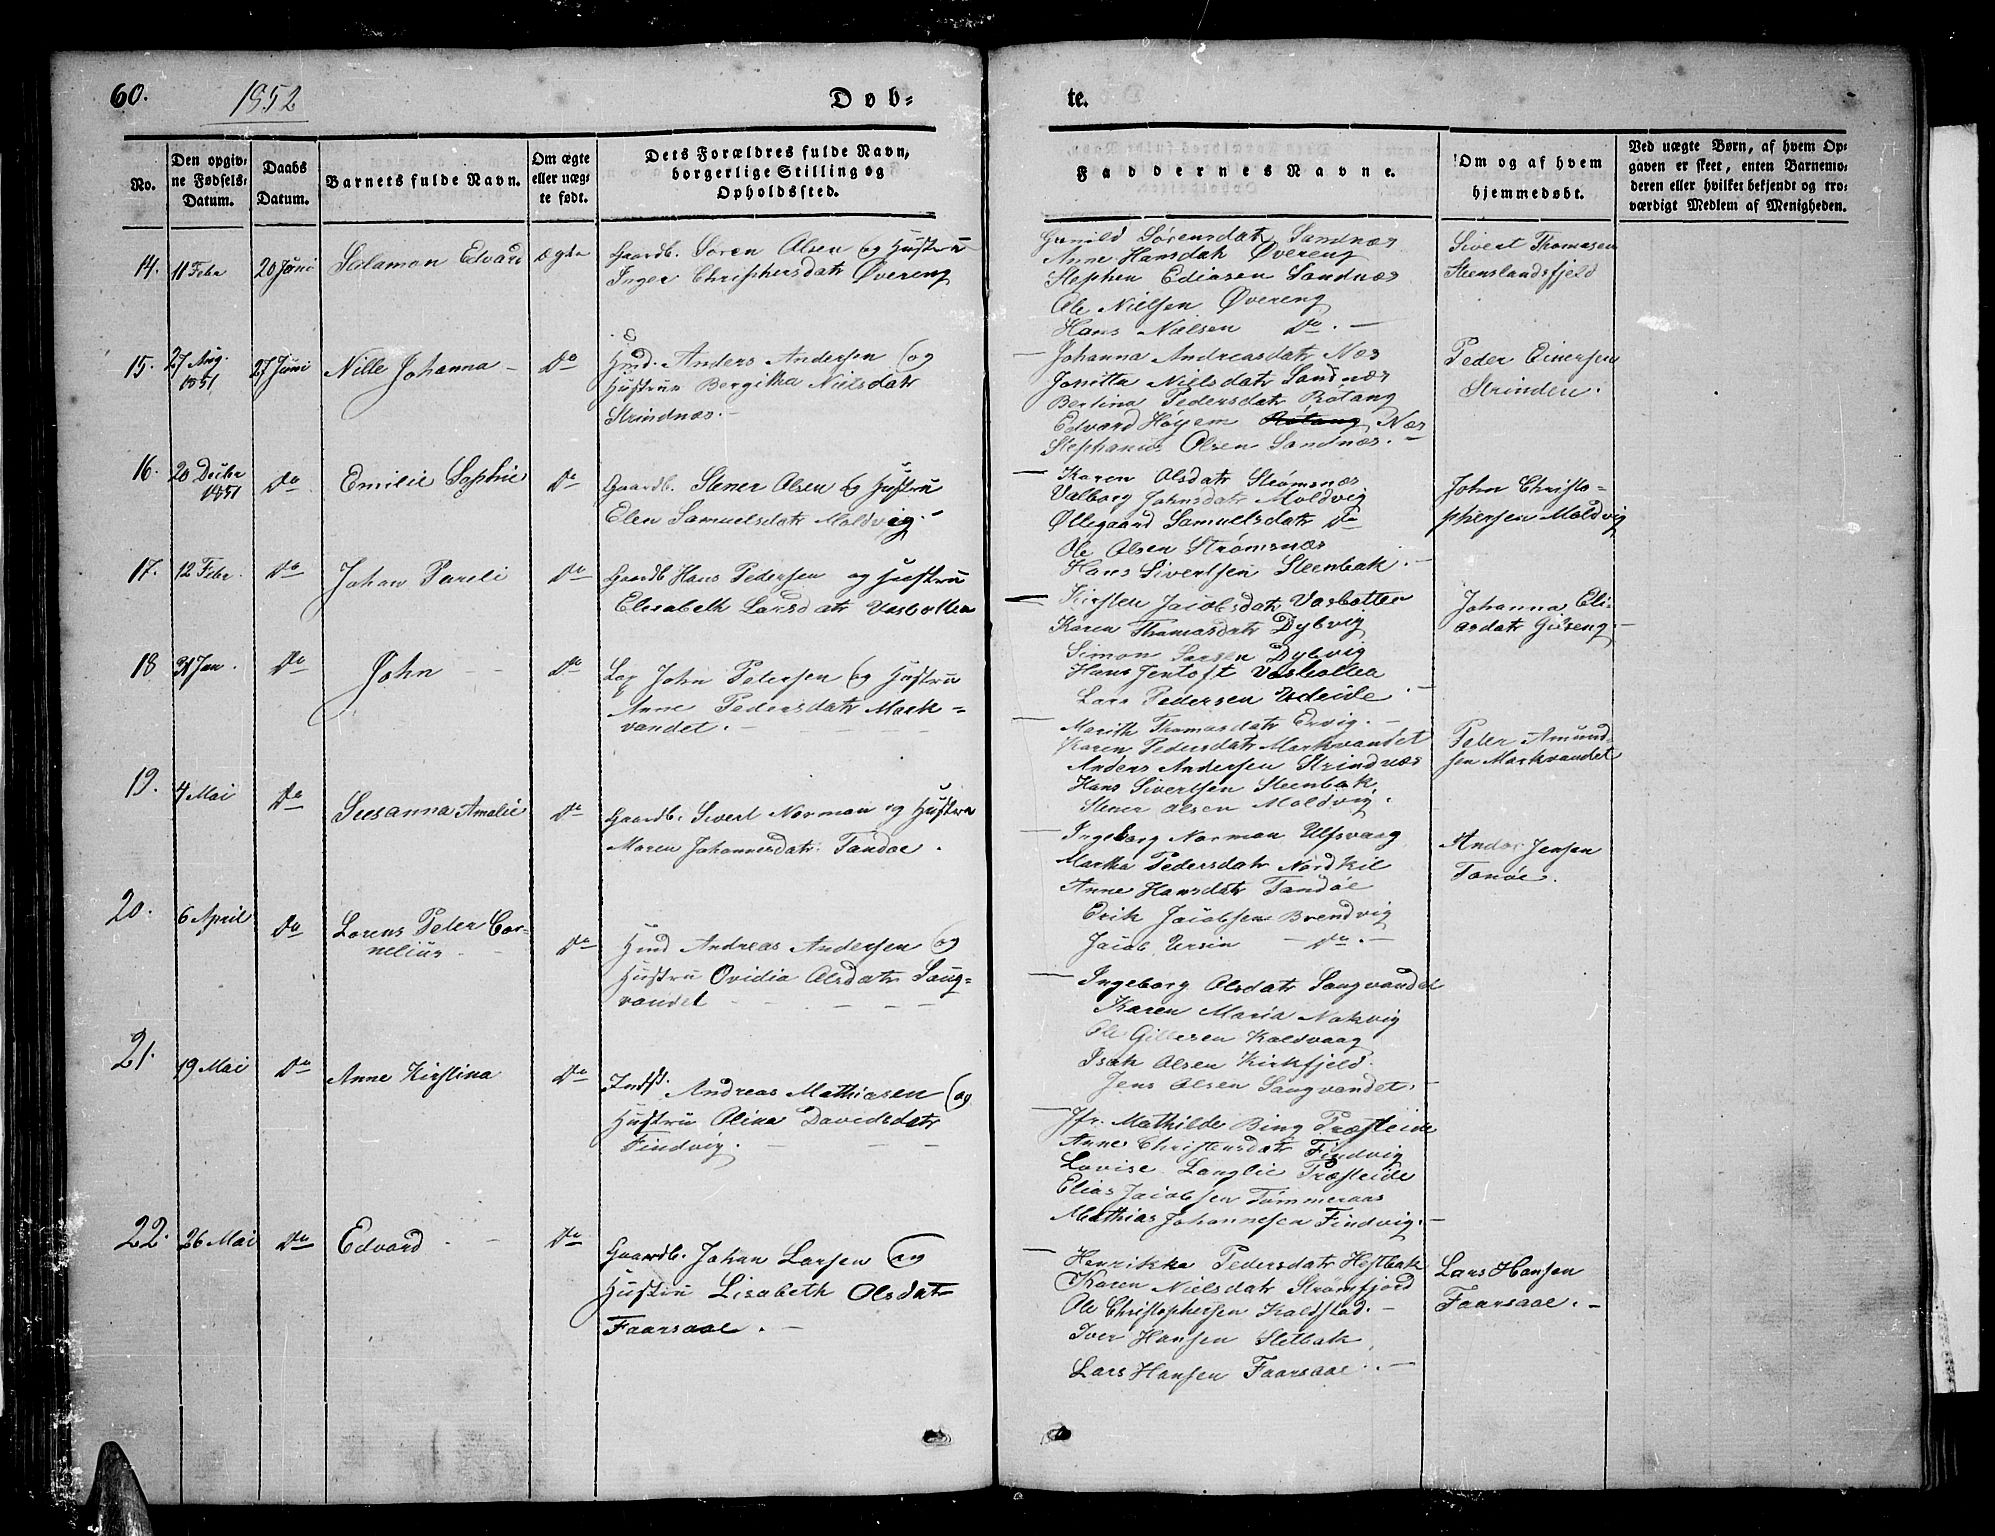 60.
1852
Døb-
te.
No.
Den opgiv-
ne Fødsels-
Datum.
Daabs
Datum.
Barnets fulde Navn.
Om ægte
eller uæg-
te født.
Dets Forældres fulde Navn,
borgerlige Stilling og
Opholdssted.
Faddernes Navne.
Om og af hvem
hjemmedøbt.
Ved uægte Børn, af hvem Op-
gaven er skeet, enten Barnemo-
deren eller hvilket bekjendt og tro-
værdigt Medlem af Menigheden.
14.
11 Febr
20 Juni
Salamon Edvard
ægte
Gaardb. Søren Olsen og Hustru
Inger Christophersdatr Øvereng
Gunild Sørensdatr Sandnæs
Anne Hansdatr Øvereng
Stephen Ediasen Sandnæs
Ole Nielsen Øvereng
Hans Nielsen Do. —
Sivert Thomasen
Steenslandsfjeld
15.
27 Aug.
1851.
27 Juni
Nille Johanna —
Do
Hmd. Anders Andersen og
Hustrue Bergitha Nielsdatr
Strindnæs. —
— Johanna Andreasdatr Næs
Jonetta Nielsdatr Sandnæs
Bertina Pedersdatr Røtang
Edvard Høyem Røtang Næs
Stephanus Olsen Sandnæs. —
Peder Einersen
Strinden.
16.
20 Decbr
1851
Do
Emilie Sophie
Do
Gaardb. Stener Olsen og Hustru
Elen Samuelsdatr Moldvig. —
— Karen Olsdatr Strømsnæs
Valborg Johnsdatr Moldvig
Øllegaard Samuelsdatr Do
Ole Olsen Strømsnæs
Hans Sivertsen Steenbak. —
John Christo-
phersen Moldvig
17.
12 Febr.
Do
Johan Pareli
Do
Gaardb Hans Pedersen og Hustru
Elisabeth Larsdatr Vasbotten
— Kirsten Jacobsdatr Vasbotten
Karen Thomasdatr Dybvig
Simon Larsen Dybvig
Hans Jentoft Vasbotten
Lars Pedersen
Johanna Eli-
asdatr
18
31 Jan.
Do
John
Do
Lap John Petersen og Hustru
Anne Pedersdatr Mark-
vandet. —
— Marith Thomasdatr —
Karen Pedersdatr Markvandet
Anders Andersen Strindnæs
Hans Sivertsen Steenbak.
Stener Olsen Moldvig.
Peder Amund-
sen Markvandet
19.
4 Mai
Do
Susanna Amalie
Do
Gaardb. Sivert Norman og Hustru
Maren Johannesdatr. Tandøe.
— Ingeborg Norman Ulfsvaag
Martha Pedersdatr Nordkil
Anne Hansdatr Tandøe
Erik Jacobsen Brendvig
Jacob Ursin — Do. —
Jensen
Tanøe.
20.
6 April
Do
Lorens Peter Cor-
nelius
Do
Hmd Andreas Andersen og
Hustru Ovidia Olsdatr Saug-
vandet
— Ingeborg Olsdatr Saugvandet
Karen Maria Nakvig
Ole Gillesen Kaldvaag
Isak Olsen Kirkfjeld
Jens Olsen Saugvandet. —
21.
19 Mai
Do
Anne Kirstina
Do
Indst. Andreas Mathiasen og
Hustru Olina Davidsdatr
Findvig.
— Jfr. Mathilde Bing Præsteide
Anne Christensdatr Findvig
Lovise Langlie Præsteide
Elias Jacobsen Tømmeraas
Mathias Johannesen Findvig. —
22.
26 Mai
Do
Edvard
Do
Gaardb. Johan Larsen og
Hustru Lisabeth Olsdatr
Faarsaae. —
— Henrikka Pedersdatr Hestbak
Karen Nielsdatr Strømfjord
Ole Christophersen Kaldstad. —
Iver Hansen Sletbak
Lars Hansen Faarsaae. —
Lars Hansen
Faarsaae. —